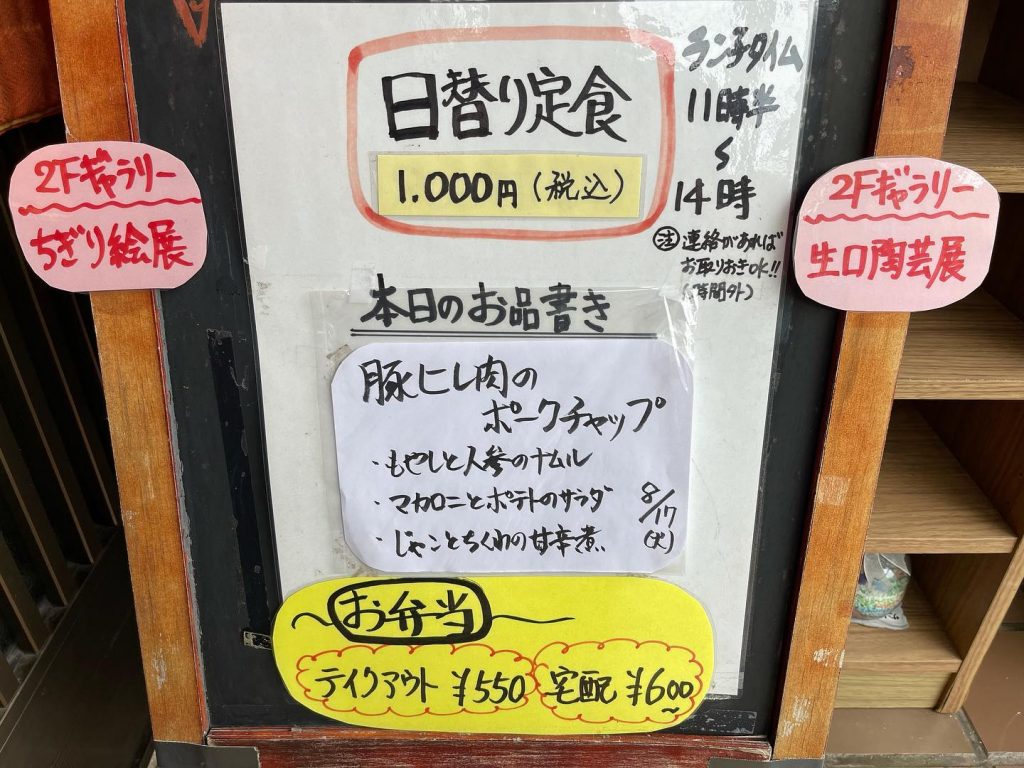 日替り定食
1.000円(税込)
ランチタイム
11時半
〜
14時
注 連絡があれば
お取りおきOK!!
(時間外)
2Fギャラリー
ちぎり絵展
2Fギャラリー
生口陶芸展
本日のお品書き
豚ヒレ肉の
ポークチャップ
・もやしと人参のナムル
・マカロニとポテトのサラダ
・じゃことちくわの甘辛煮
8/17
(火)
お弁当
テイクアウト ¥550
宅配 ¥600